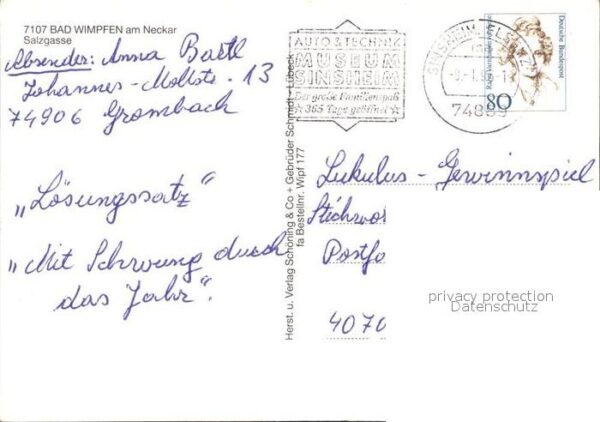 7107 BAD WIMPFEN am Neckar
Salzgasse
Absender: Anna Bartl
Johannes-Moltstr. 13
74906 Grombach
„Lösungssatz“
„Mit Schwung durch
das Jahr“.
Herst. u. Verlag Schöning & Co + Gebrüder Schmidt - Lübeck
fa Bestellnr. Wipf 177
AUTO & TECHNIK
MUSEUM
SINSHEIM
Der große Familienspaß
☆ 365 Tage geöffnet ☆
SINSHEIM
74889
80
Deutsche Bundespost
Lukulus-Gewinnspiel
Stichwor
Postfa
4070
privacy protection
Datenschutz